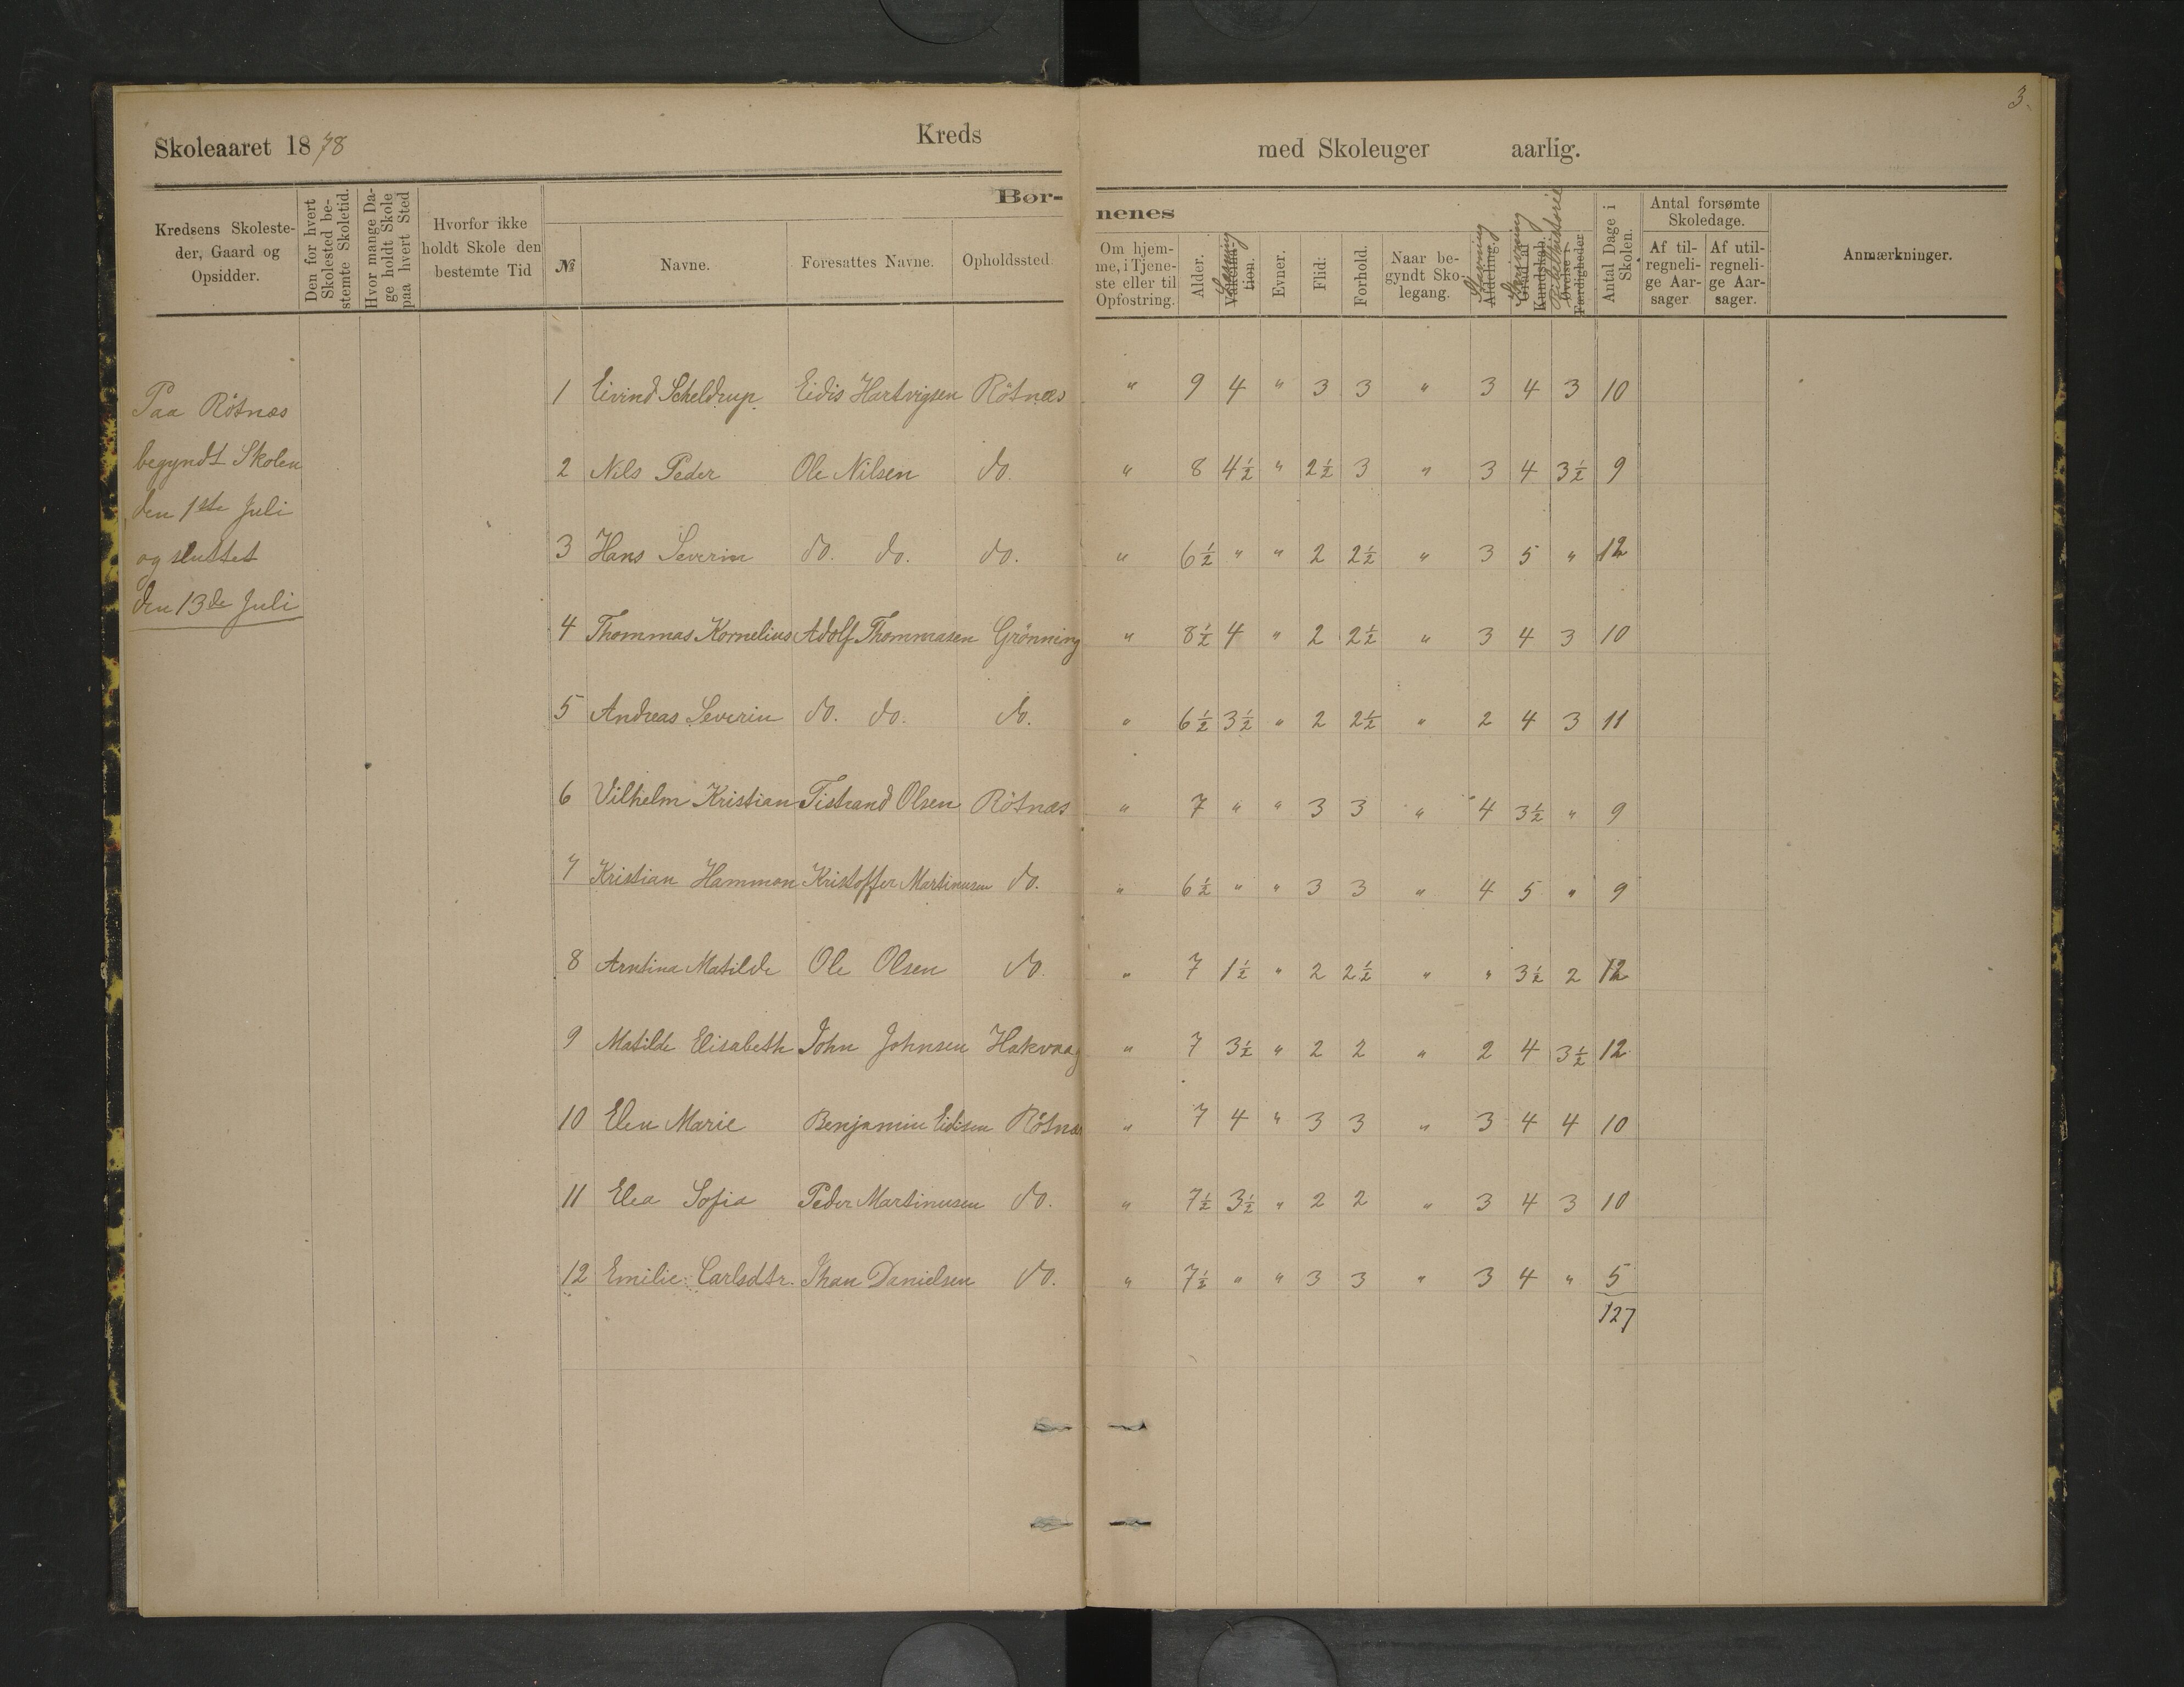 3.
Skoleaaret 1878 Kreds med Skoleuger aarlig.
Bør- nenes
Kredsens Skolesteder, Gaard og Opsidder.
Den for hvert Skolested bestemte Skoletid.
Hvor mange Dage holdt Skole paa hvert Sted
Hvorfor ikke holdt Skole den bestemte Tid
№
Navne.
Foresattes Navne.
Opholdssted.
Om hjemme, i Tjeneste eller til Opfostring.
Alder.
Læsning
Evner.
Flid.
Forhold.
Naar begyndt Skolegang.
Stavning
Afdeling.
Skrivning
Grad af Kundskab.
Bibelhistorie
Øvelse i Færdigheder
Antal Dage i Skolen.
Antal forsømte Skoledage.
Af tilregnelige Aarsager
Af utilregnelige Aarsager.
Anmærkninger.
Paa Rötnæs
begyndt Skolen
den 1ste Juli
og sluttet
den 13de Juli
1 Eivind Scheldrup Eidis Hartvigsen Rötnæs " 9 4 " 3 3 " 3 4 3 10
2 Nils Peder Ole Nilsen do. " 8 4½ " 2½ 3 " 3 4 3½ 9
3 Hans Severin do. do. do. " 6½ " " 2 2½ " 3 5 " 12
4 Thommas Kornelius Adolf Thommasen Grönning " 8½ 4 " 2 2½ " 3 4 3 10
5 Andreas Severin do. do. do. " 6½ 3½ " 2 2½ " 2 4 3 11
6 Vilhelm Kristian Tistrand Olsen Rötnæs " 7 " " 3 3 " 4 3½ " 9
7 Kristian Hammon Kristoffer Martinusen do. " 6½ " " 3 3 " 4 5 " 9
8 Arntina Matilde Ole Olsen do. " 7 1½ " 2 2½ " " 3½ 2 12
9 Matilde Elisabeth John Johnsen Hakvaag " 7 3½ " 2 2 " 2 4 3½ 12
10 Elen Marie Benjamin Eidisen Rötnæs " 7 4 " 3 3 " 3 4 4 10
11 Elea Sofia Peder Martinusen do. " 7½ 3½ " 2 2 " 3 4 3 10
12 Emilie Carlsdtr. Jhan Danielsen do. " 7½ " " 3 3 " 3 4 " 5
127